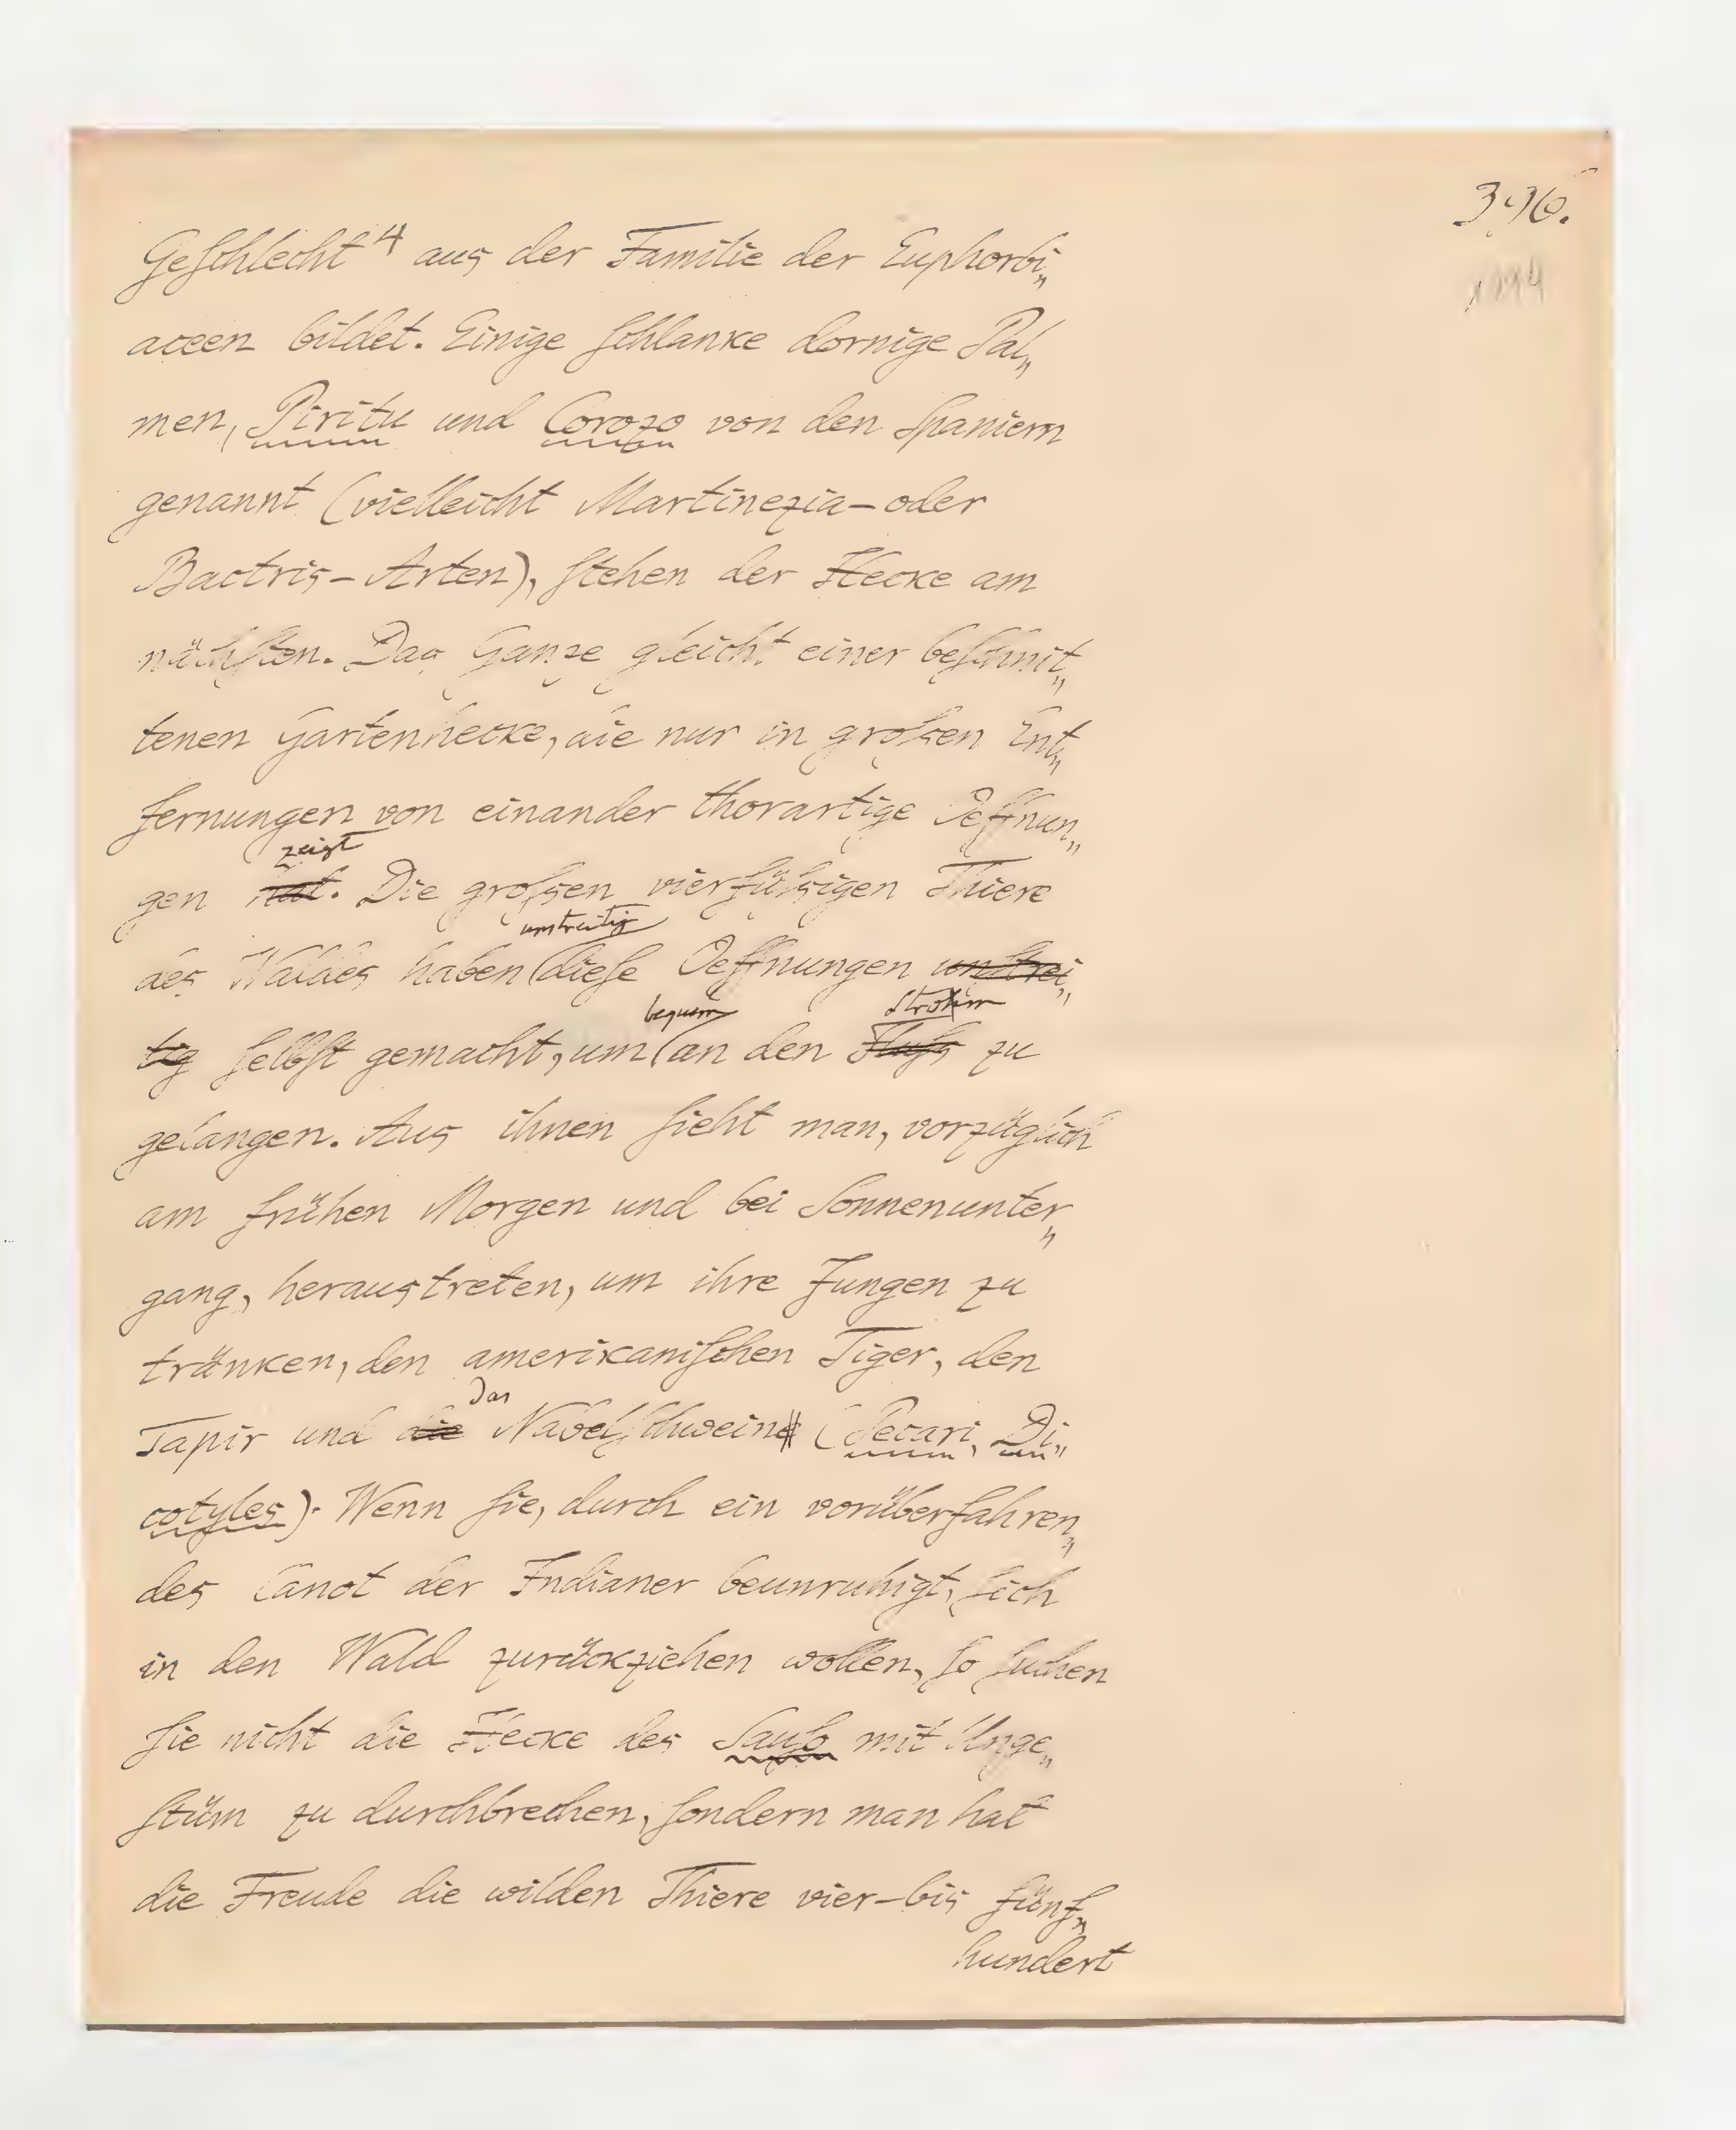 396.
Geschlecht 4 aus der Familie der Euphorbi„
aceen bildet. Einige schlanke dornige Pal„
men, Piritu und Corozo von den Spaniern
genannt (vielleicht Martinezia- oder
Bactris-Arten), stehen der Hecke am
nächsten. Das Ganze gleicht einer beschnit„
tenen Gartenhecke, die nur in großen Ent„
fernungen von einander thorartige Oeffnun„
zeigt
gen hat. Die großen vierfüßigen Thiere
unstreitig
des Waldes haben (diese Oeffnungen unstrei„
bequem Strohm
tig selbst gemacht, um (an den Fluß zu
gelangen. Aus ihnen sieht man, vorzüglich
am frühen Morgen und bei Sonnenunter„
gang, heraustreten, um ihre Jungen zu
tränken, den amerikanischen Tiger, den
das
Tapir und die Nabelschweine (Pecari, Di„
cotyles). Wenn sie, durch ein vorüberfahren„
des Canot der Indianer beunruhigt, sich
in den Wald zurückziehen wollen, so suchen
sie nicht die Hecke des Sauso mit Unge„
stüm zu durchbrechen, sondern man hat
die Freude die wilden Thiere vier- bis fünf„
hundert